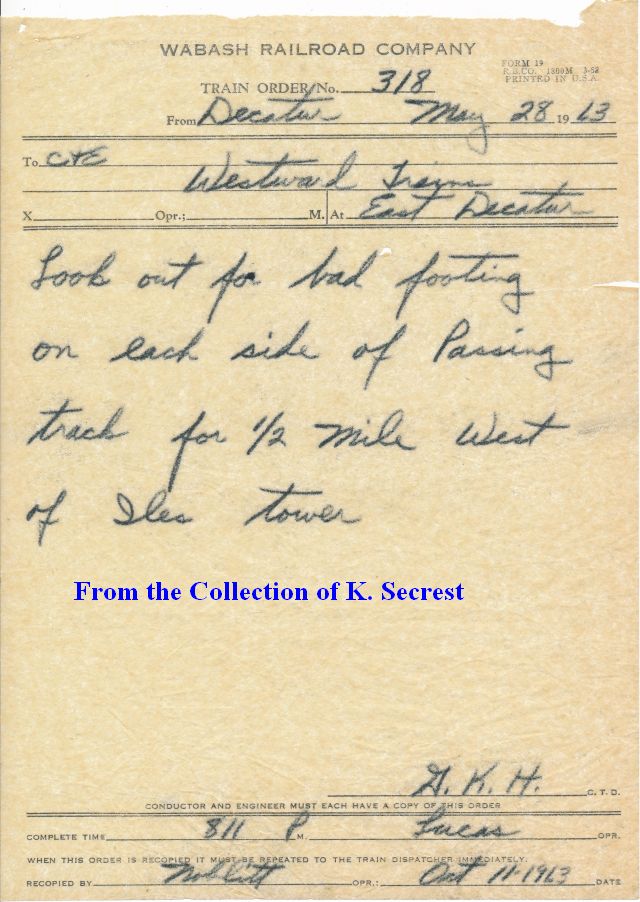 WABASH RAILROAD COMPANY
FORM 19
R.B.CO. 1800M 3-52
PRINTED IN U.S.A.
TRAIN ORDER No. 318
From Decatur May 28 1963
To C&E
Westward Trains
X Opr.; M. At East Decatur
Look out for bad footing
on each side of Passing
track for 1/2 mile West
of Iles tower
From the Collection of K. Secrest
G. K. H. C. T. D.
CONDUCTOR AND ENGINEER MUST EACH HAVE A COPY OF THIS ORDER
COMPLETE TIME 811 P M. Lucas OPR.
WHEN THIS ORDER IS RECOPIED IT MUST BE REPEATED TO THE TRAIN DISPATCHER IMMEDIATELY.
RECOPIED BY Noblitt OPR.; Oct 11-1963 DATE